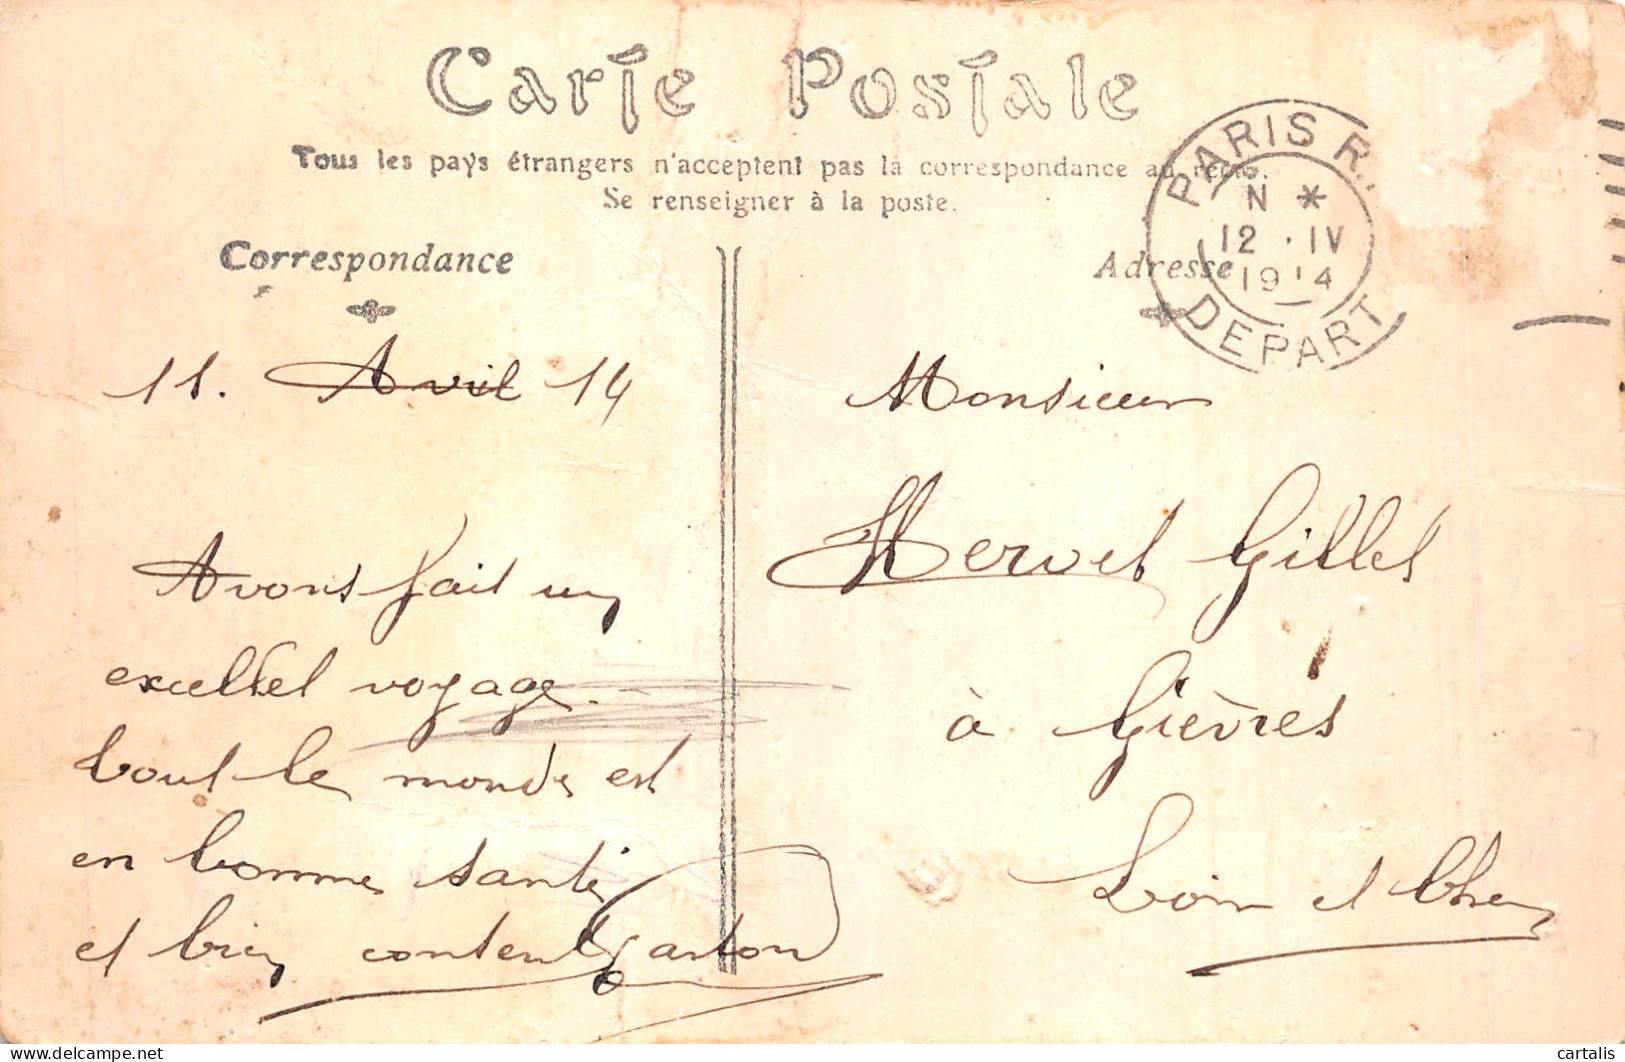 Carte Postale
Tous les pays étrangers n'acceptent pas la correspondance au recto.
Se renseigner à la poste.
Correspondance
Adresse
PARIS R.
N *
12 · IV
1914
DEPART
11. Avril 14
Avons fait un
excellent voyage.
tout le monde est
en bonne santé
et bien content Gaston
Monsieur
Hervet Gillet
à Gièvres
Loir et Cher
cartalis